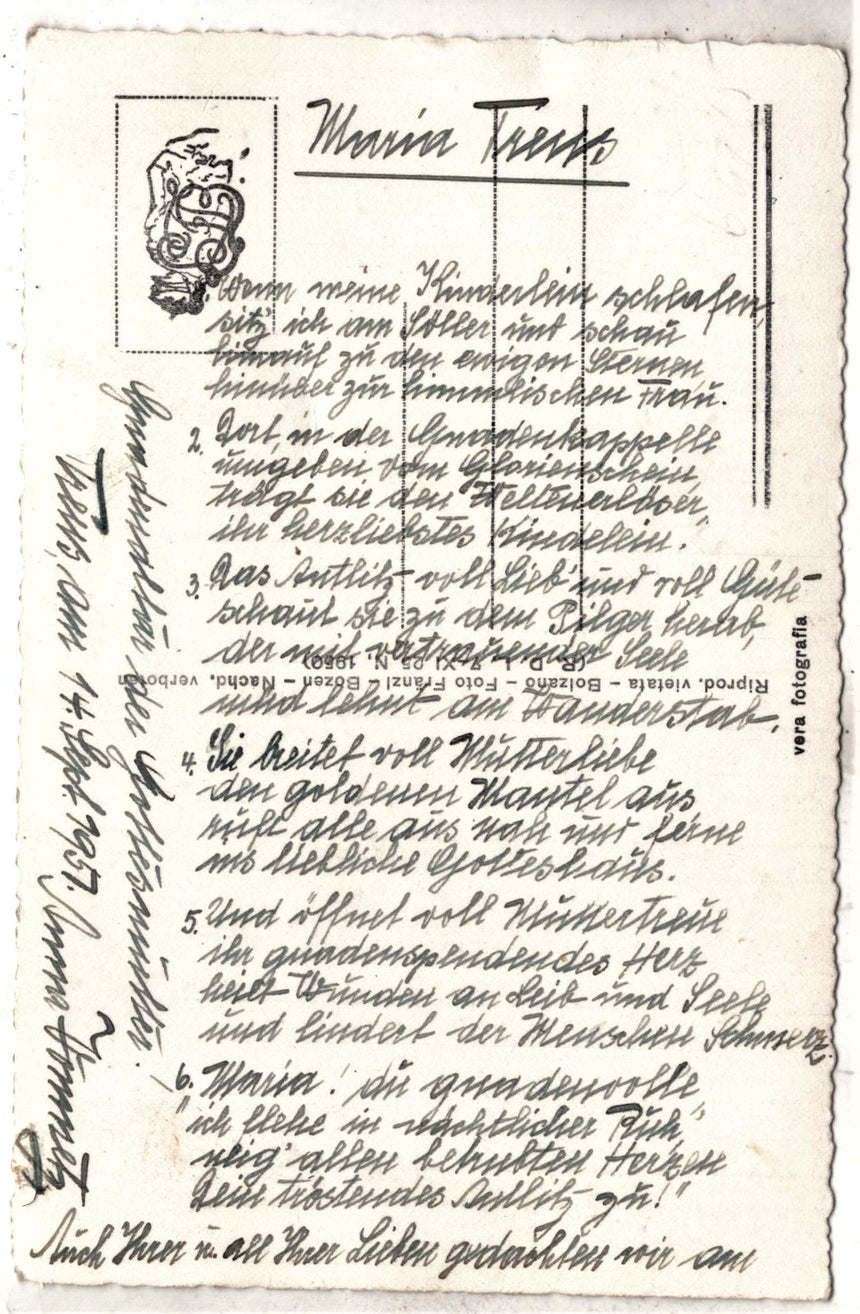 Maria Trens
1. Wenn meine Kinderlein schlafen,
sitz' ich am Söller und schau
hinauf zu den ewigen Sternen
hinüber zur himmlischen Frau.
2. Dort in der Gnadenkappelle
umgeben vom Glorienschein,
trägt sie den Welterlöser,
ihr herzliebstes Kindelein.
3. Das Antlitz voll Lieb' und voll Güte
schaut sie zu dem Pilger herab,
der mit vertrauender Seele
und lehnt am Wanderstab.
4. Sie breitet voll Mutterliebe
den goldenen Mantel aus
ruft alle aus nah und ferne
ins liebliche Gotteshaus.
5. Und öffnet voll Muttertreue
ihr gnadenspendendes Herz
heilt Wunden an Leib und Seele
und lindert der Menschen Schmerz.
6. Maria! du gnadenvolle
"ich flehe in nächtlicher Ruh"
neig' allen betrübten Herzen
Dein tröstendes Antlitz zu!"
Auch Ihrer u. all Ihrer Lieben gedachten wir am
Gnadenaltar der Gottesmutter.
Trens, am 14. Sept. 1957. Anna
Riprod. vietata – Bolzano – Foto Fränzl – Bozen – Nachd. verboten
(R. D. L. 7-XI 25 N. 1950)
vera fotografia